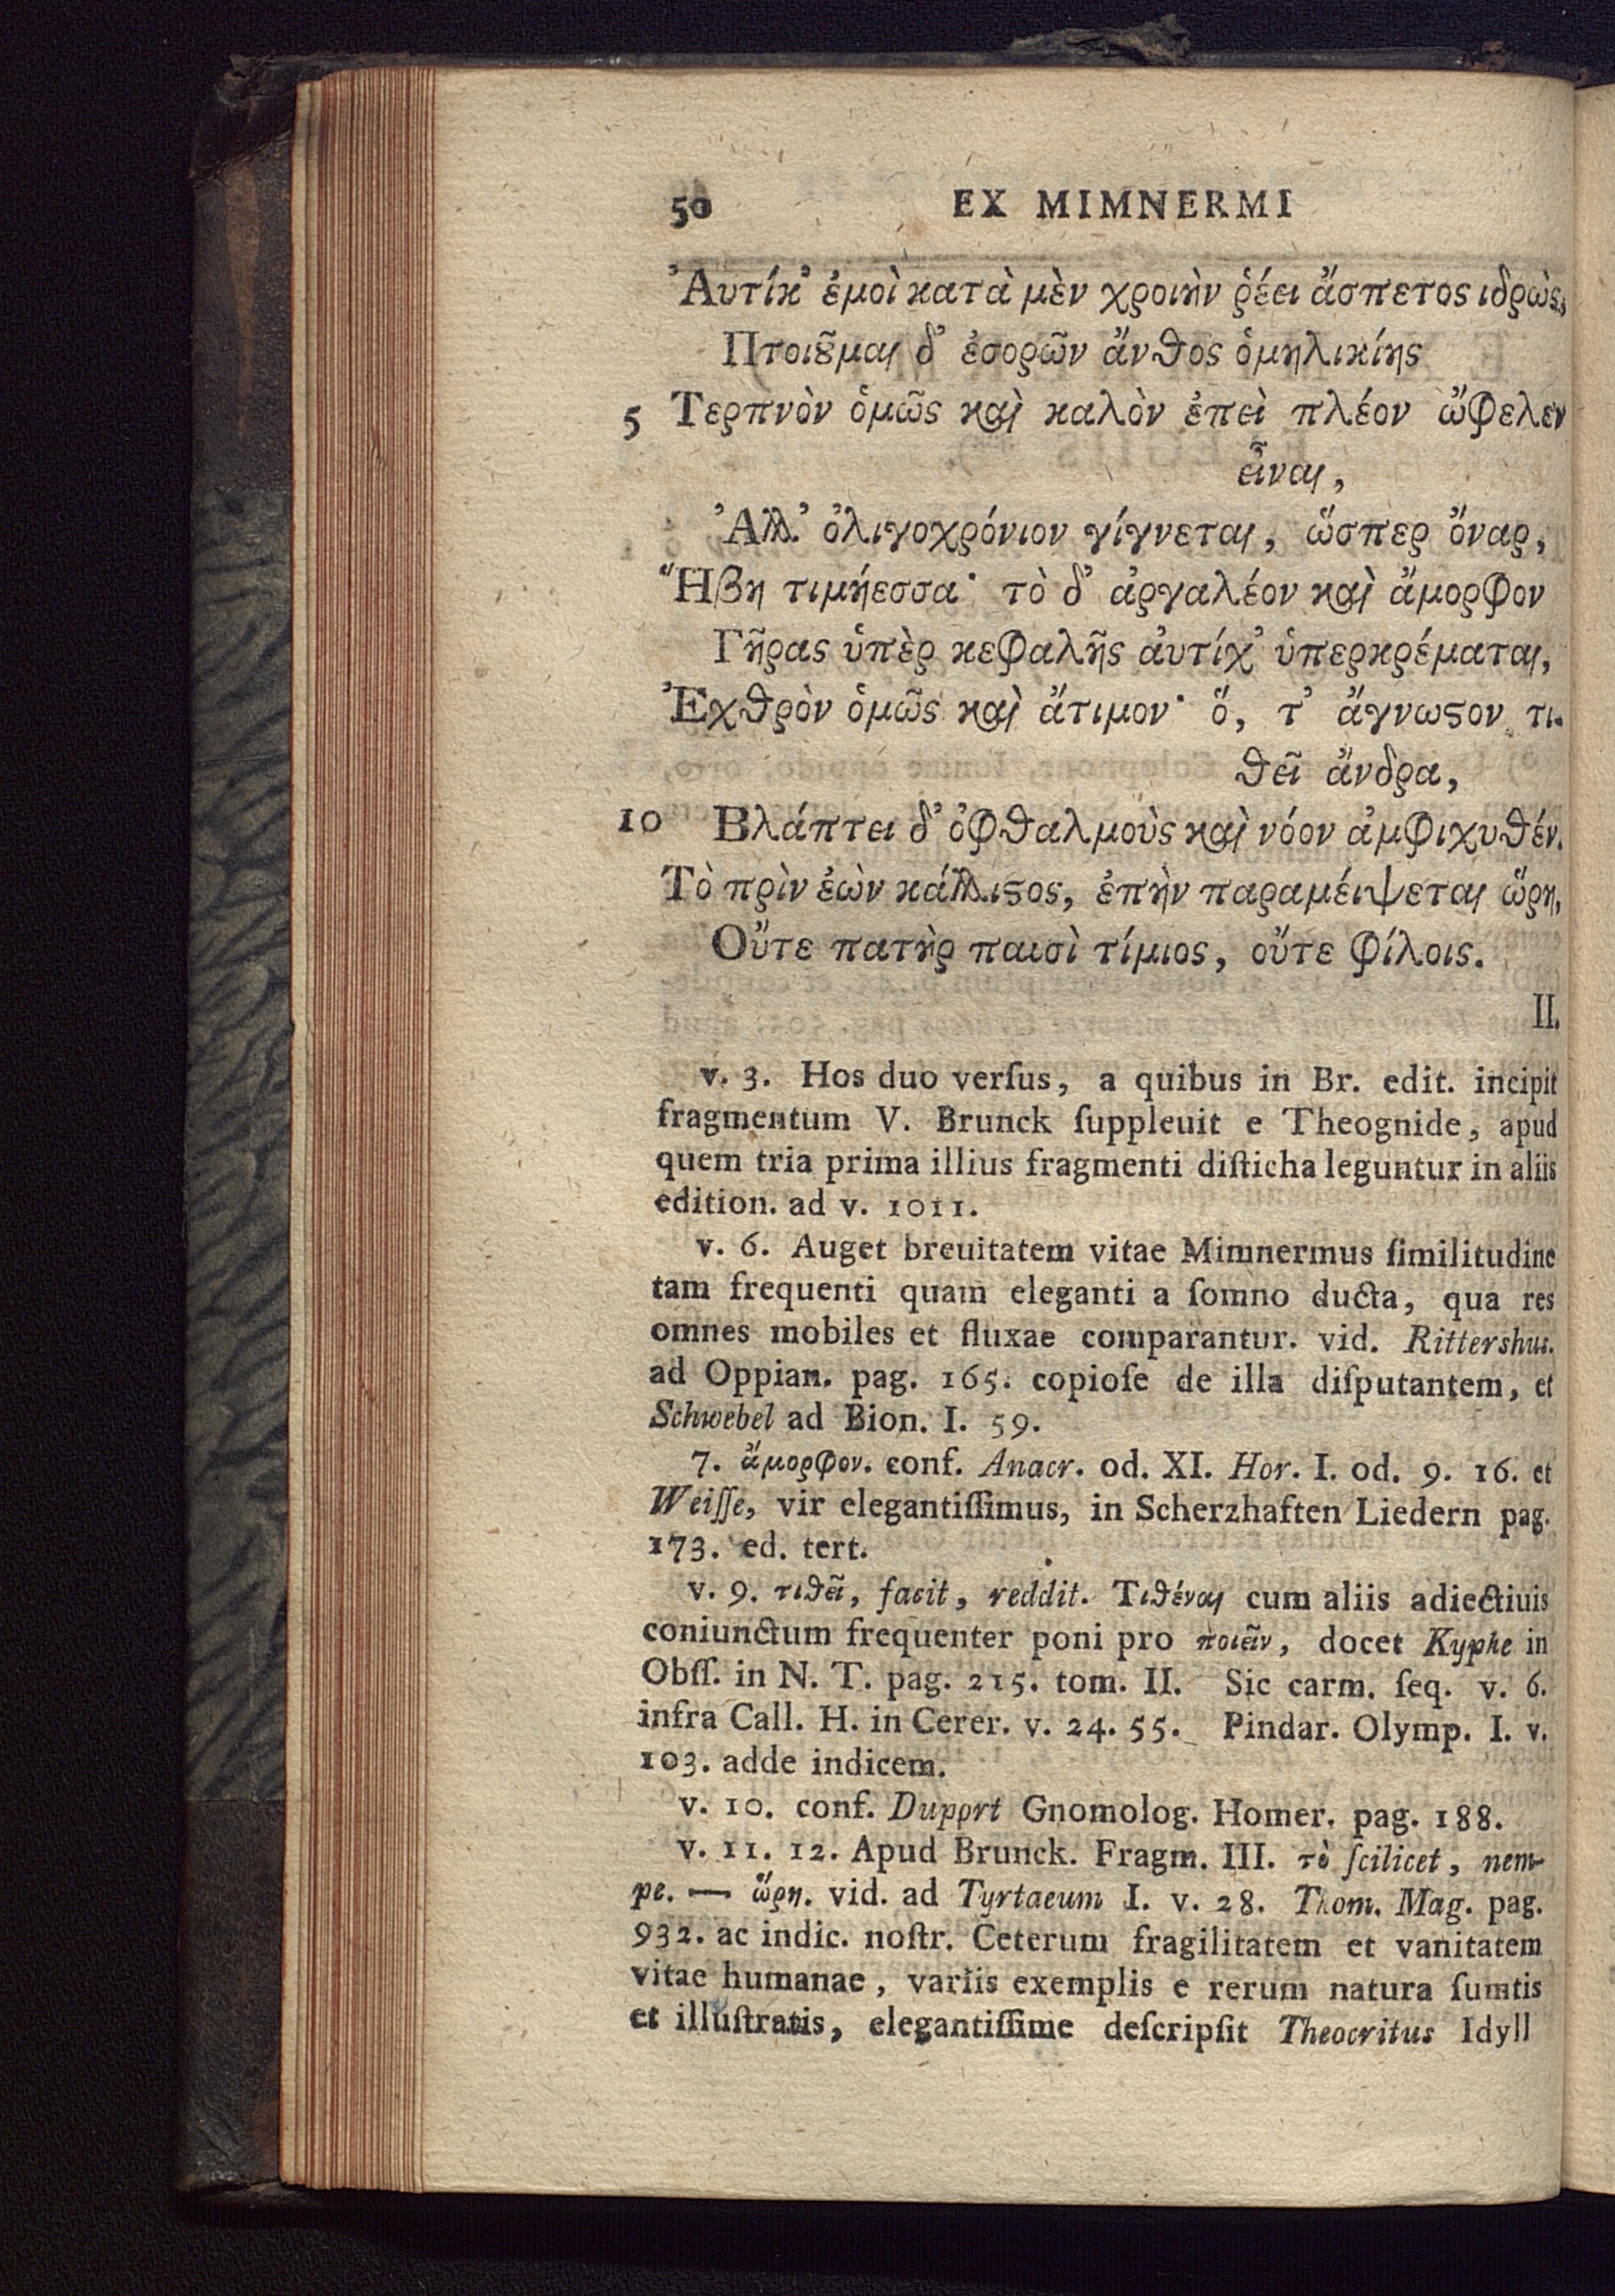 50 EX MIMNERMI
Ἀυτίκ' ἐμοὶ κατὰ μὲν χροιὴν ῥέει ἄσπετος ιδρὼς,
Πτοιȣ͂μαι δ' ἐσορῶν ἄνθος ὁμηλικίης
5 Τερπνὸν ὁμῶς καὶ καλὸν ἐπεὶ πλέον ὤφελεν
εἶναι,
Ἀλλ' ὀλιγοχρόνιον γίγνεται, ὥσπερ ὄναρ,
Ἥβη τιμήεσσα· τὸ δ' ἀργαλέον καὶ ἄμορφον
Γῆρας ὑπὲρ κεφαλῆς ἀυτίχ' ὑπερκρέμαται,
Ἐχθρὸν ὁμῶς καὶ ἄτιμον· ὅ, τ' ἄγνωϛον τι-
θεῖ ἄνδρα,
10 Βλάπτει δ' ὀφθαλμοὺς καὶ νόον ἀμφιχυθέν.
Τὸ πρὶν ἐὼν κάλλιϛος, ἐπὴν παραμέιψεται ὥρη,
Οὔτε πατὴρ παισὶ τίμιος, οὔτε φίλοις.
II.
v. 3. Hos duo verſus, a quibus in Br. edit. incipit
fragmentum V. Brunck ſuppleuit e Theognide, apud
quem tria prima illius fragmenti diſticha leguntur in aliis
edition. ad v. 1011.
v. 6. Auget breuitatem vitae Mimnermus ſimilitudine
tam frequenti quam eleganti a ſomno ducta, qua res
omnes mobiles et fluxae comparantur. vid. Rittershus.
ad Oppian. pag. 165. copioſe de illa diſputantem, et
Schwebel ad Bion. I. 59.
7. ἄμορφον. conf. Anacr. od. XI. Hor. I. od. 9. 16. et
Weiſſe, vir elegantiſſimus, in Scherzhaften Liedern pag.
173. ed. tert.
v. 9. τιθεῖ, facit, reddit. Τιθέναι cum aliis adiectiuis
coniunctum frequenter poni pro ποιεῖν, docet Kyphe in
Obſſ. in N. T. pag. 215. tom. II. Sic carm. ſeq. v. 6.
infra Call. H. in Cerer. v. 24. 55. Pindar. Olymp. I. v.
103. adde indicem.
v. 10. conf. Duport Gnomolog. Homer. pag. 188.
v. 11. 12. Apud Brunck. Fragm. III. τὸ ſcilicet, nem-
pe. — ὥρη. vid. ad Tyrtaeum I. v. 28. Thom. Mag. pag.
932. ac indic. noſtr. Ceterum fragilitatem et vanitatem
vitae humanae, variis exemplis e rerum natura ſumtis
et illuſtratis, elegantiſſime deſcripſit Theocritus Idyll